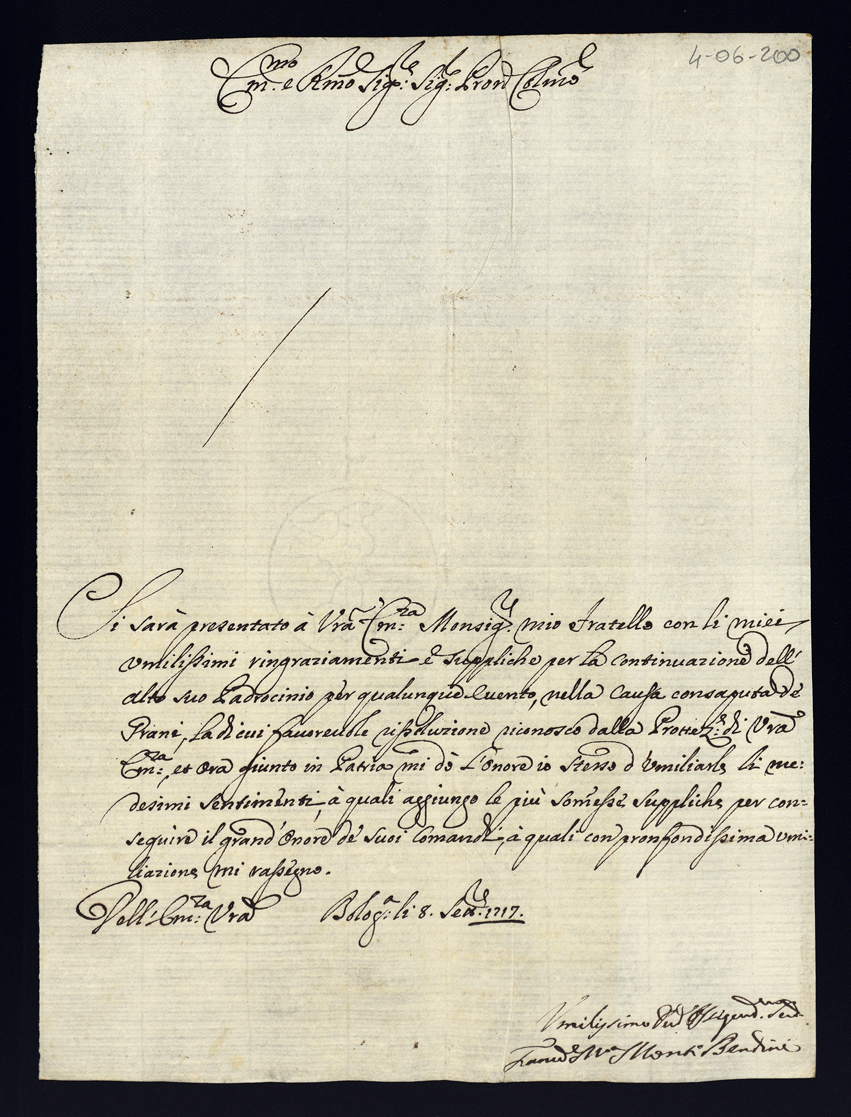 4-06-200
Em.mo e Rmo Sig.re Sig.re Pron Colmo
Si sarà presentato à Vra Em.za Monsig.r mio fratello con li miei
umilissimi ringraziamenti e suppliche per la continuazione dell'
alto suo Padrocinio per qualunque evento, nella causa consaputa de
Prani, la di cui favorevole rissoluzione riconosco dalla Prottez.e di Vra
Em.za, et ora giunto in Patria mi dò l'onore io stesso d'umiliarle li me-
desimi sentimenti, à quali aggiungo le più somesse suppliche per con-
seguire il grand'onore de suoi comandi, à quali con pronfondissima umi-
liazione mi rassegno.
Dell'Em.za Vra Bolog.a li 8. Set.re 1717.
Umilissimo Dev.
Monti Bendini